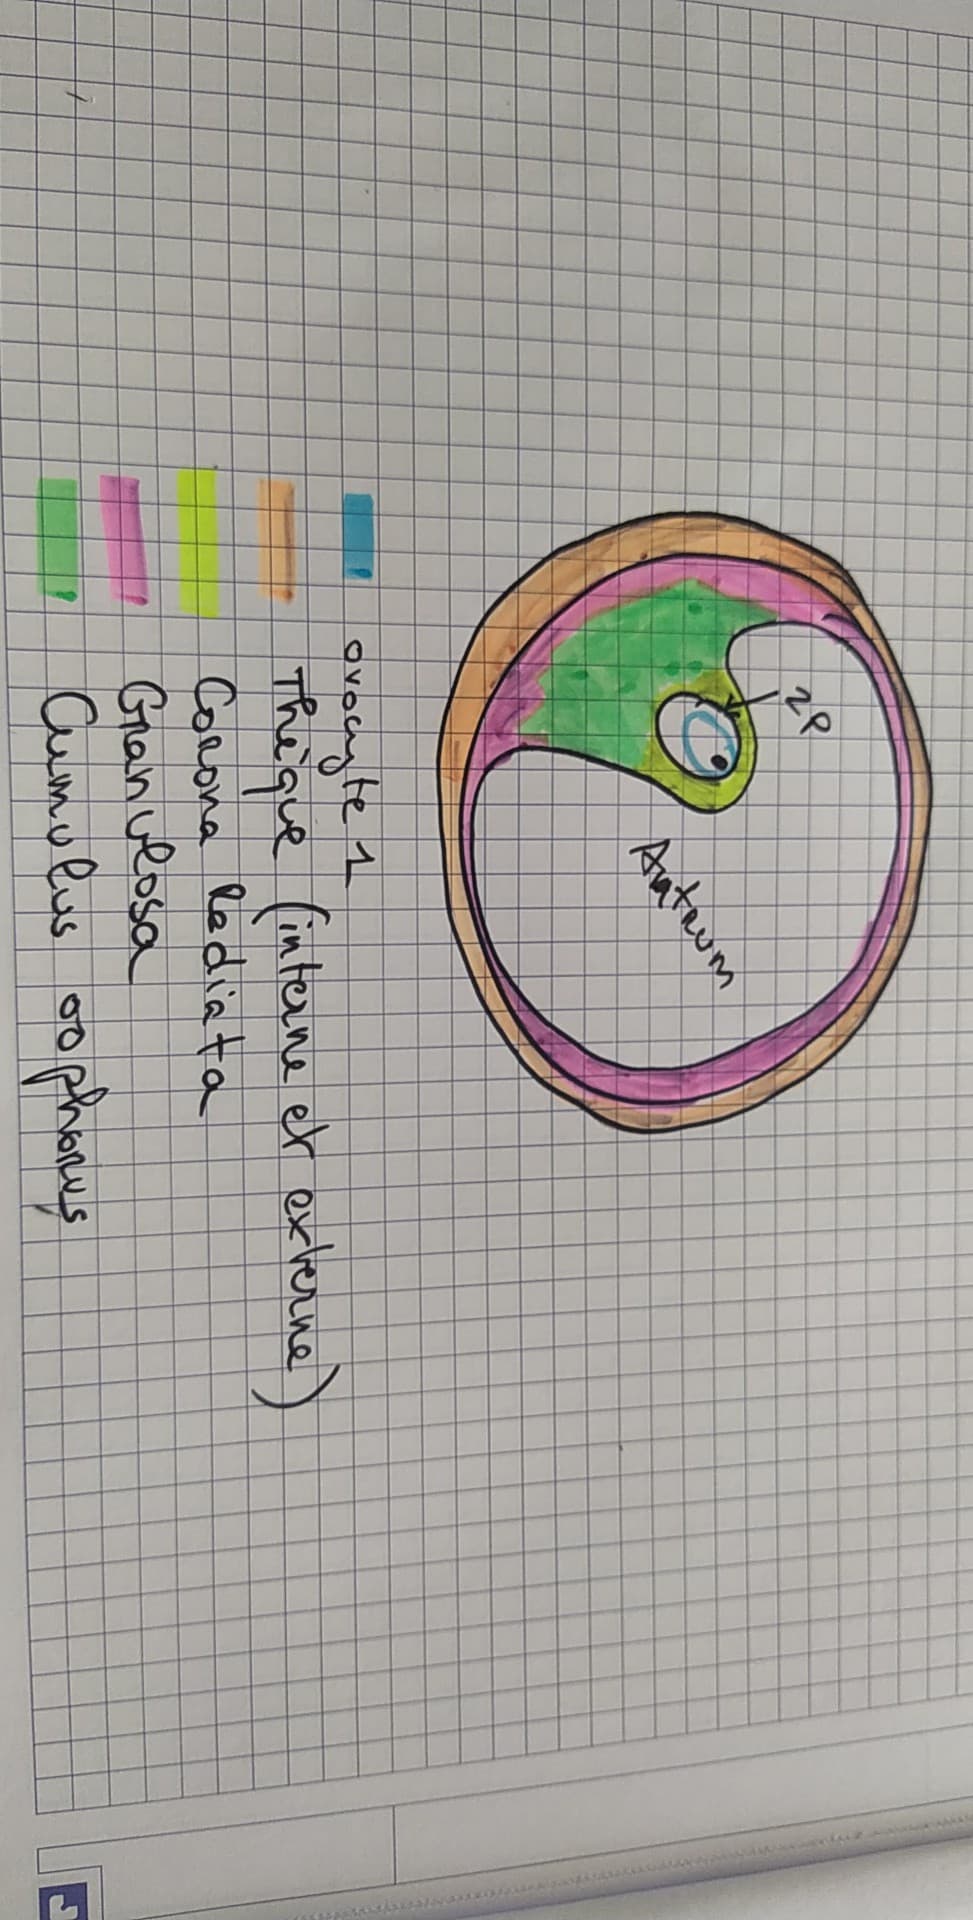 ZP
Antrum
ovocyte 1
Thèque (interne et externe)
Corona Radiata
Granulosa
Cumulus oophorus